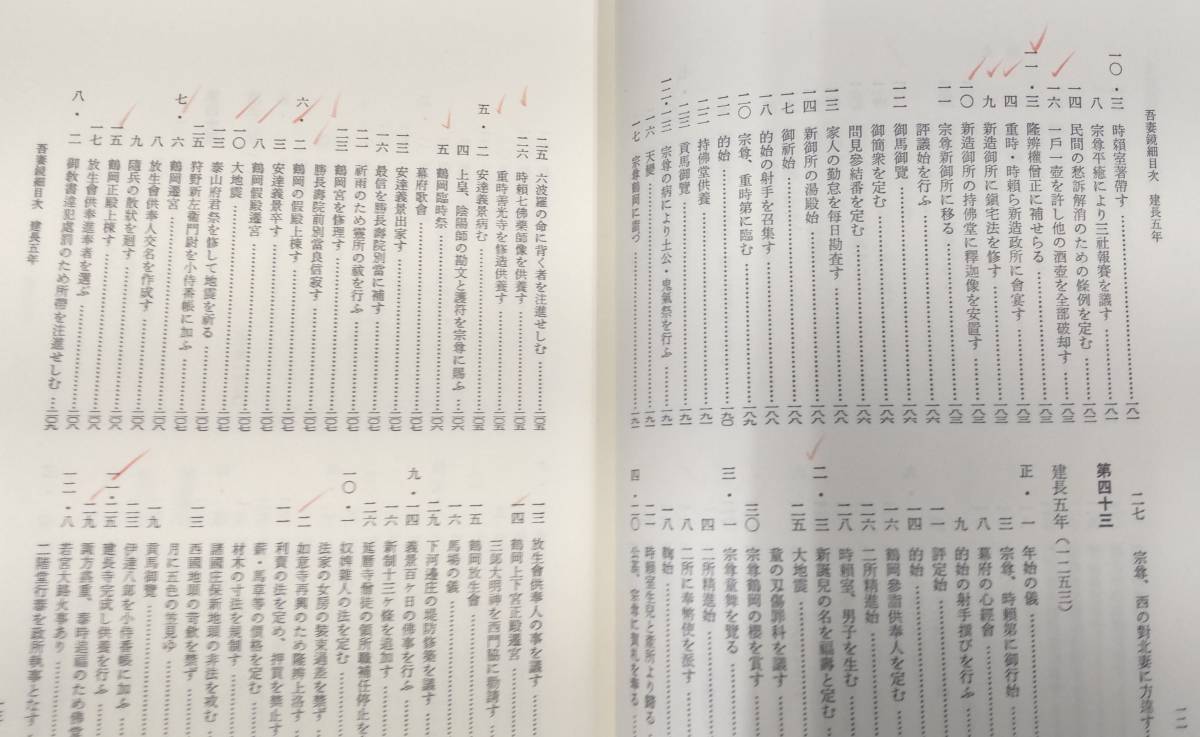 吾妻鏡細目次　建長五年
一〇・三　時頼室著帶す……一八一
八　宗尊平癒により三社報賽を議す……一八一
一四　民間の愁訴解消のための條例を定む……一八二
一六　一戸一壺を許し他の酒壺を全部破却す……一八三
一一・三　隆辨權僧正に補せらる……一八三
四　重時・時頼ら新造政所に會宴す……一八三
九　新造御所に鎭宅法を修す……一八三
一〇　新造御所の持佛堂に釋迦像を安置す……一八三
一一　宗尊新御所に移る……一八三
評議始を行ふ……一八六
一二　御馬御覽……一八八
御簡衆を定む……一八八
問見參結番を定む……一八八
一三　家人の勤怠を毎日勘査す……一八八
一四　新御所の湯殿始……一八八
一七　御祈始
一八　的始の射手を召集す
二〇　宗尊、重時第に臨む
二一　的始……一九〇
二二　持佛堂供養……一九一
二三　貢馬御覽……一九一
一二・一三　宗尊の病により土公・鬼氣祭を行ふ……一九一
一六　天變……一九一
一七　宗尊鶴岡に詣づ
二七　宗尊、西の對北妻に方違す
第四十三
建長五年（一二五三）
正・一　年始の儀
三　宗尊、時頼第に御行始
八　幕府の心經會
九　的始の射手撰びを行ふ
一一　評定始
一四　的始
一六　鶴岡參詣供奉人を定む
二六　二所精進始
二八　時頼室、男子を生む
二・三　新誕兒の名を福壽と定む
二五　大地震
童の刃傷罪科を議す
三〇　宗尊鶴岡の櫻を賞す
三・一　宗尊童舞を覽る
四　二所精進始
八　二所に奉幣使を派す
一八　鞠始
二一　時頼室生兒と産所より歸る
四・二〇
二五　六波羅の命に背く者を注進せしむ……二〇五
二六　時頼七佛藥師像を供養す……二〇五
重時善光寺を修造供養す……二〇五
五・二　安達義景病む……二〇五
四　上皇、陰陽師の勘文と護符を宗尊に賜ふ……二〇六
五　鶴岡臨時祭……二〇六
幕府歌會
一三　安達義景出家す
一六　最信を勝長壽院別當に補す
二一　祈雨のため靈所の祓を行ふ……二〇七
二三　鶴岡宮を修理す……二〇七
勝長壽院前別當良信寂す……二〇七
六・二　鶴岡の假殿上棟す……二〇七
三　安達義景卒す……二〇七
八　鶴岡假殿遷宮……二〇七
一〇　大地震……二〇七
一三　泰山府君祭を修して地震を祈る……二〇七
二五　狩野新左衞門尉を小侍番帳に加ふ……二〇七
七・六　鶴岡遷宮……二〇七
八　放生會供奉人交名を作成す……二〇七
九　隨兵の散狀を廻す……二〇八
一五　鶴岡正殿上棟す……二〇八
一七　放生會供奉進奉者を選ぶ……二〇八
八・二　御教書違犯處罰のため所帶を注進せしむ……二〇八
吾妻鏡細目次　建長五年
一三　放生會供奉人の事を議す
一四　鶴岡上下宮正殿遷宮
三郎大明神を西門脇に勸請す
一五　鶴岡放生會
一六　馬場の儀
二九　下河邊庄の堤防修築を議す
九・一四　義景百ケ日の佛事を行ふ
一六　新制十三ケ條を追加す
二六　延暦寺僧徒の領所職補任停止を
一〇・一　奴婢雜人の法を定む
法家の女房の裝束過差を禁ず
二　如意寺再興のため隆辨上洛す
一一　利賣の法を定め、押買を禁止す
薪・馬草等の價格を定む
材木の寸法を規制す
諸國庄保新地頭の非法を戒む
一三　西國地頭の苛斂を禁ず
月に五色の笠見ゆ
一九　貢馬御覽
二三　伊達八郎を小侍番帳に加ふ
一一・二五　建長寺完成し供養を行ふ
二九　兼方嘉重、泰時追福のため佛堂
一二・八　若宮大路火事あり
二階堂行泰を政所執事となす